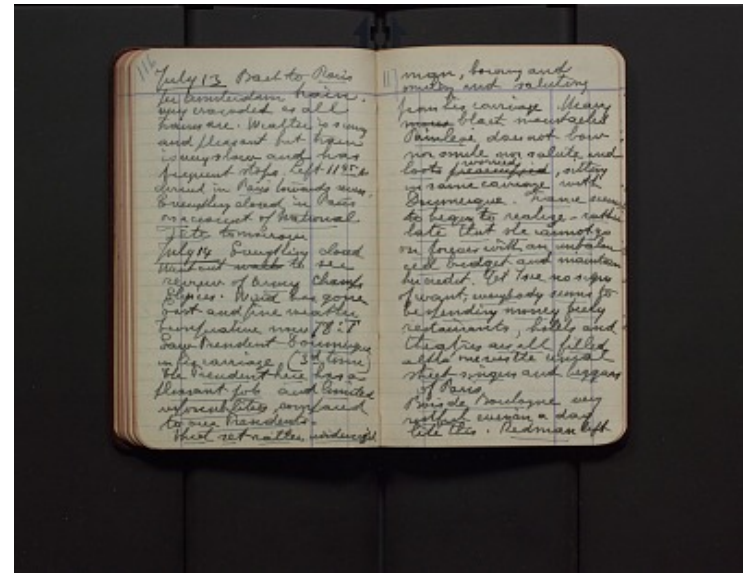 116
July 13 Back to Paris
by Amsterdam train.
very crowded as all
trains are. Weather is sunny
and pleasant but train
is very slow and has
frequent stops. Left 11 45
arrived in Paris towards seven.
Everything closed in Paris
on account of National
Fete tomorrow
July 14 Everything closed
Went out walk to see
review of Army Champs
Elysees. Wind has gone
East and fine weather
temperature now 78°
Saw President Doumergue
in his carriage (3d time)
The President here has a
pleasant job and limited
responsibilities, compared
to our Presidents.
thick set rather
117 man, bowing and
smiling and saluting
from his carriage. Heavy
black moustached
Painlevé does not bow
nor smile nor salute and
looks worried, sitting
in same carriage with
Doumergue. France seems
to begin to realize - rather
late that she cannot go
on forever with an unbalan
ced budget and maintain
her credit. Yet I see no signs
of want, everybody seems to
be spending money freely
restaurants, hotels and
theatres are all filled
also the usual
street singers and beggars
of Paris
Bois de Boulogne very
even on a day
like this. Redman left